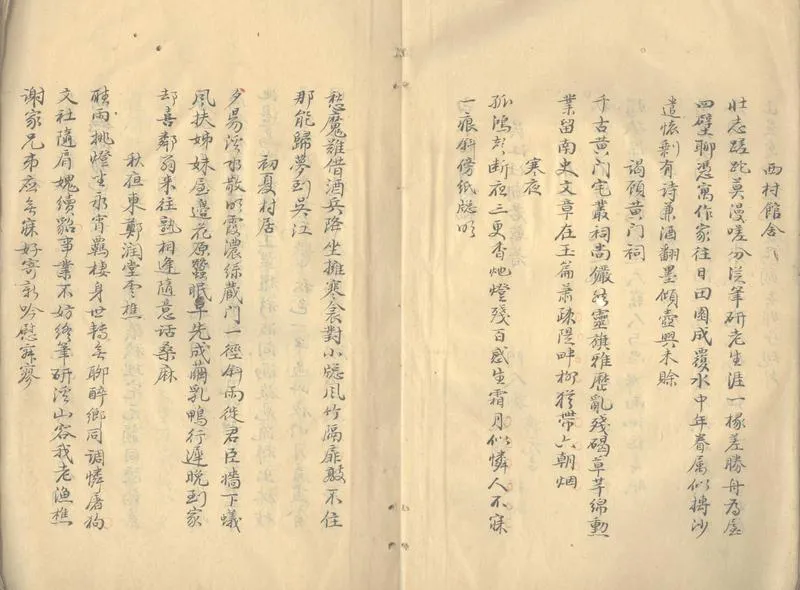 西村館舍
壯志蹉跎莫漫嗟分從筆硏老生涯一椽差勝舟為屋
四壁聊憑寓作家往日田園成覆水中年眷属似摶沙
遣懷剩有詩兼酒翻墨傾壺興未賒
謁顧黄门祠
千古黄门宅叢祠尚儼然靈旗雅歷亂殘碣草芊绵勳
業留南史文章在玉篇蕭疎隄畔柳猶帶六朝烟
寒夜
孤鴻聲断夜三更香灺燈殘百感生霜月似憐人不寐
一痕斜傍纸牕明
愁魔難借酒兵降坐擁寒衾對小牕風竹隔扉敲不住
那能歸夢到吳江
初夏村居
夕昜浮水散明霞濃綠藏門一徑斜雨徙君臣牆下蟻
風扶姊妹屋邊花原蠶眠早先成繭乳鴨行遲晚到家
却喜鄰翁来往熟相逢隨意話桑麻
秋夜柬鄭润堂雲樵
聽雨挑燈坐永宵羈棲身世轉無聊醉鄉同調憐屠狗
文社隨肩愧續貂事業不妨終筆硏溪山容我老漁樵
謝家兄弟應無寐好寄新吟慰寂寥